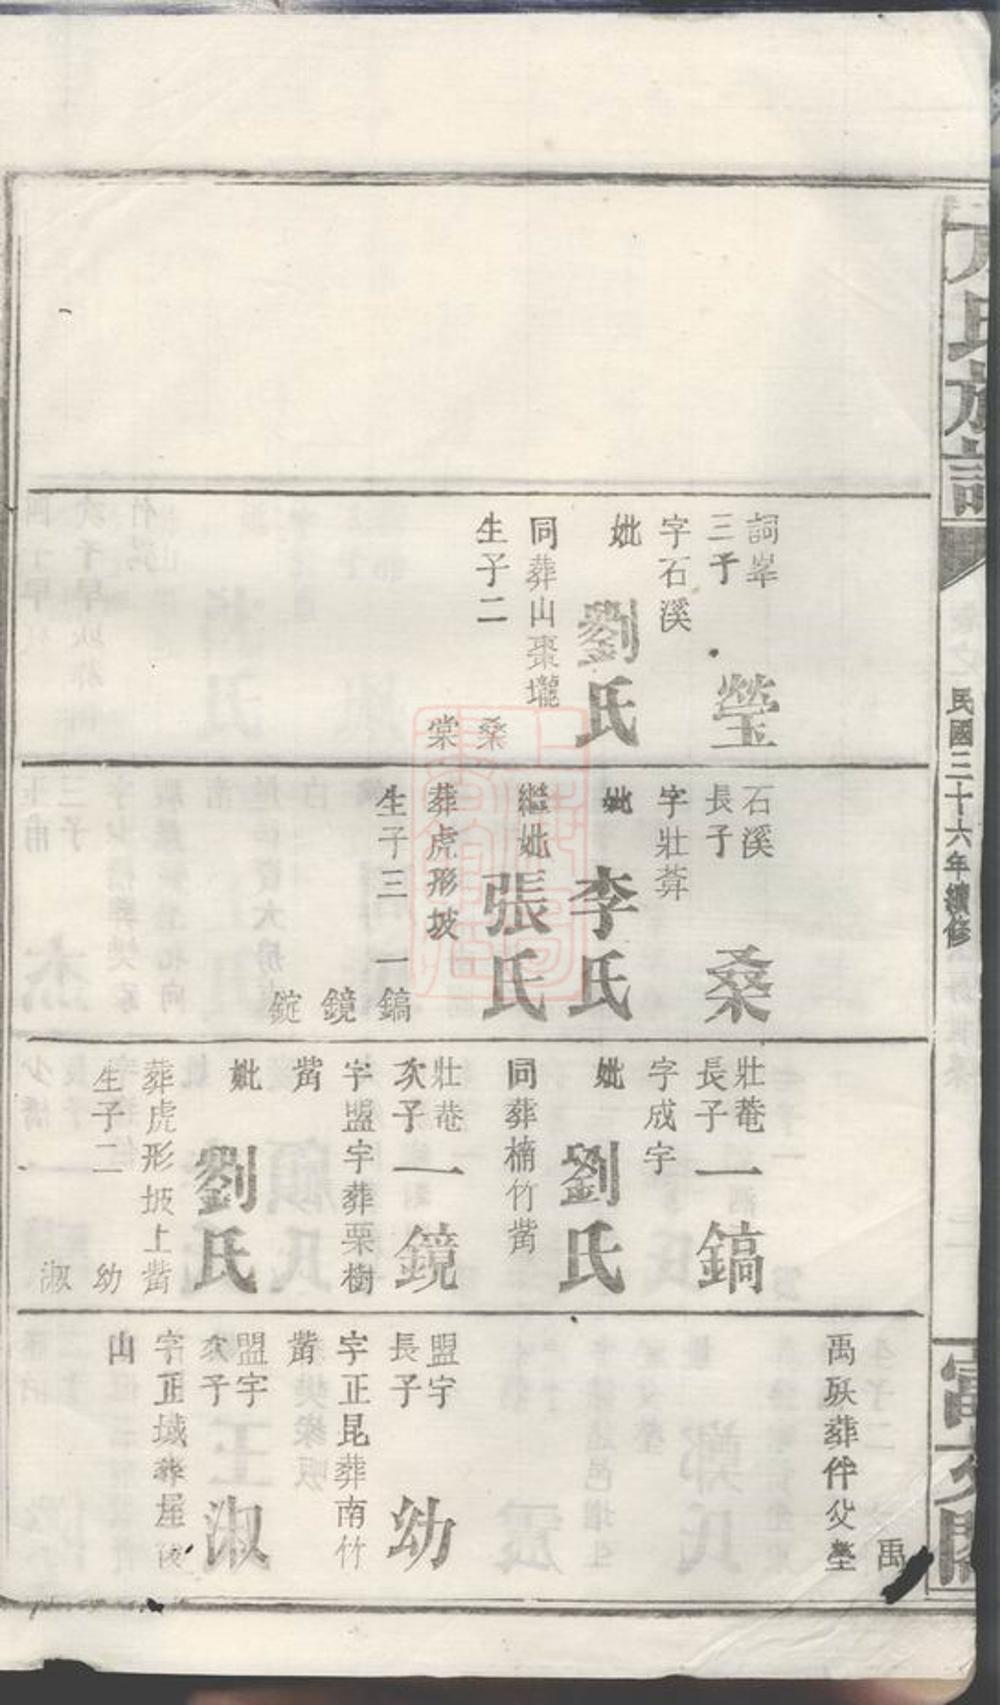 氏族譜
民國三十六年續修
詞峯
三子
瑩
字石溪
妣
劉氏
同葬山棗壠
生子二
桑
棠
石溪
長子
桑
字壯葊
妣
李氏
繼妣
張氏
葬虎形坡
生子三
一鎬
鏡
錠
壯菴
長子
一鎬
字成宇
妣
劉氏
同葬楠竹
壯菴
次子
一鏡
字盟宇葬栗樹
妣
劉氏
葬虎形坡上
生子二
幼
淑
禹
禹殀葬伴父塋
盟宇
長子
幼
字正昆葬南竹
盟宇
次子
淑
字正域葬屋後
山